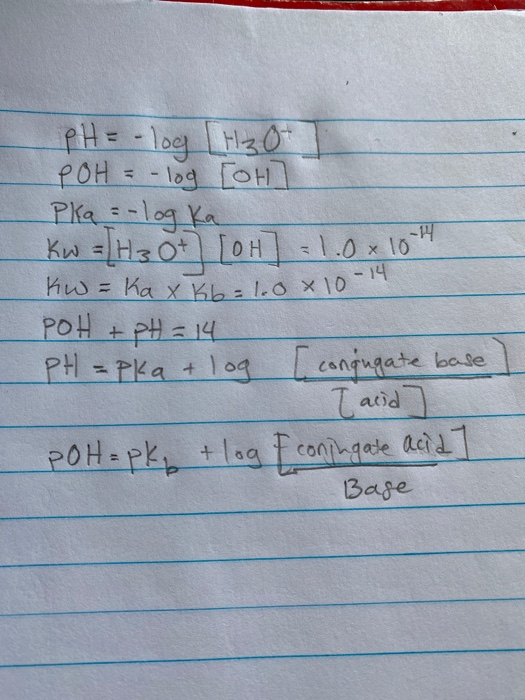 pH = -log [H3O+]
POH = -log [OH]
PKa = -log Ka
Kw = [H3O+] [OH] = 1.0 × 10-14
Kw = Ka × Kb = 1.0 × 10-14
POH + pH = 14
pH = PKa + log [conjugate base]
[acid]
POH = pKb + log [conjugate acid]
Base